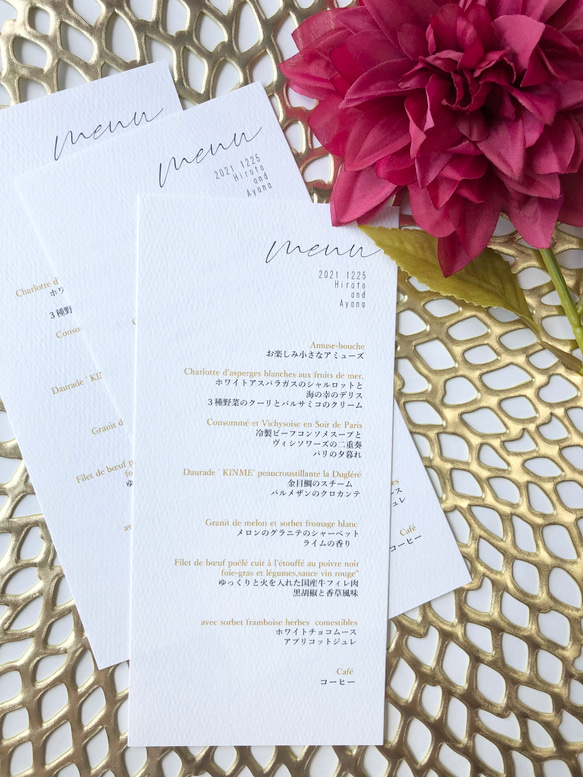 menu
2021 1225
Hiroto
and
Ayana
Amuse-bouche
お楽しみ小さなアミューズ
Charlotte d'asperges blanches aux fruits de mer.
ホワイトアスパラガスのシャルロットと
海の幸のデリス
3種野菜のクーリとバルサミコのクリーム
Consommé et Vichysoise en Soir de Paris
冷製ビーフコンソメスープと
ヴィシソワーズの二重奏
パリの夕暮れ
Daurade ¨KINME¨ peaucroustillante la Dugléré
金目鯛のスチーム
パルメザンのクロカンテ
Granit de melon et sorbet fromage blanc
メロンのグラニテのシャーベット
ライムの香り
Filet de bœuf poêlé cuit à l'étouffé au poivre noir
foie-gras et légumes,saure vin rouge"
ゆっくりと火を入れた国産牛フィレ肉
黒胡椒と香草風味
avec sorbet framboise herbes comestibles
ホワイトチョコムース
アプリコットジュレ
Café
コーヒー
menu
2021 1225
Hiroto
and
Ayana
menu
Charlotte d'
ホワ
3種野
Conso
Daurade ¨KIN
Granit d
Filet de bœuf p
foie
ゆ
av
ース
ジュレ
Café
コーヒー